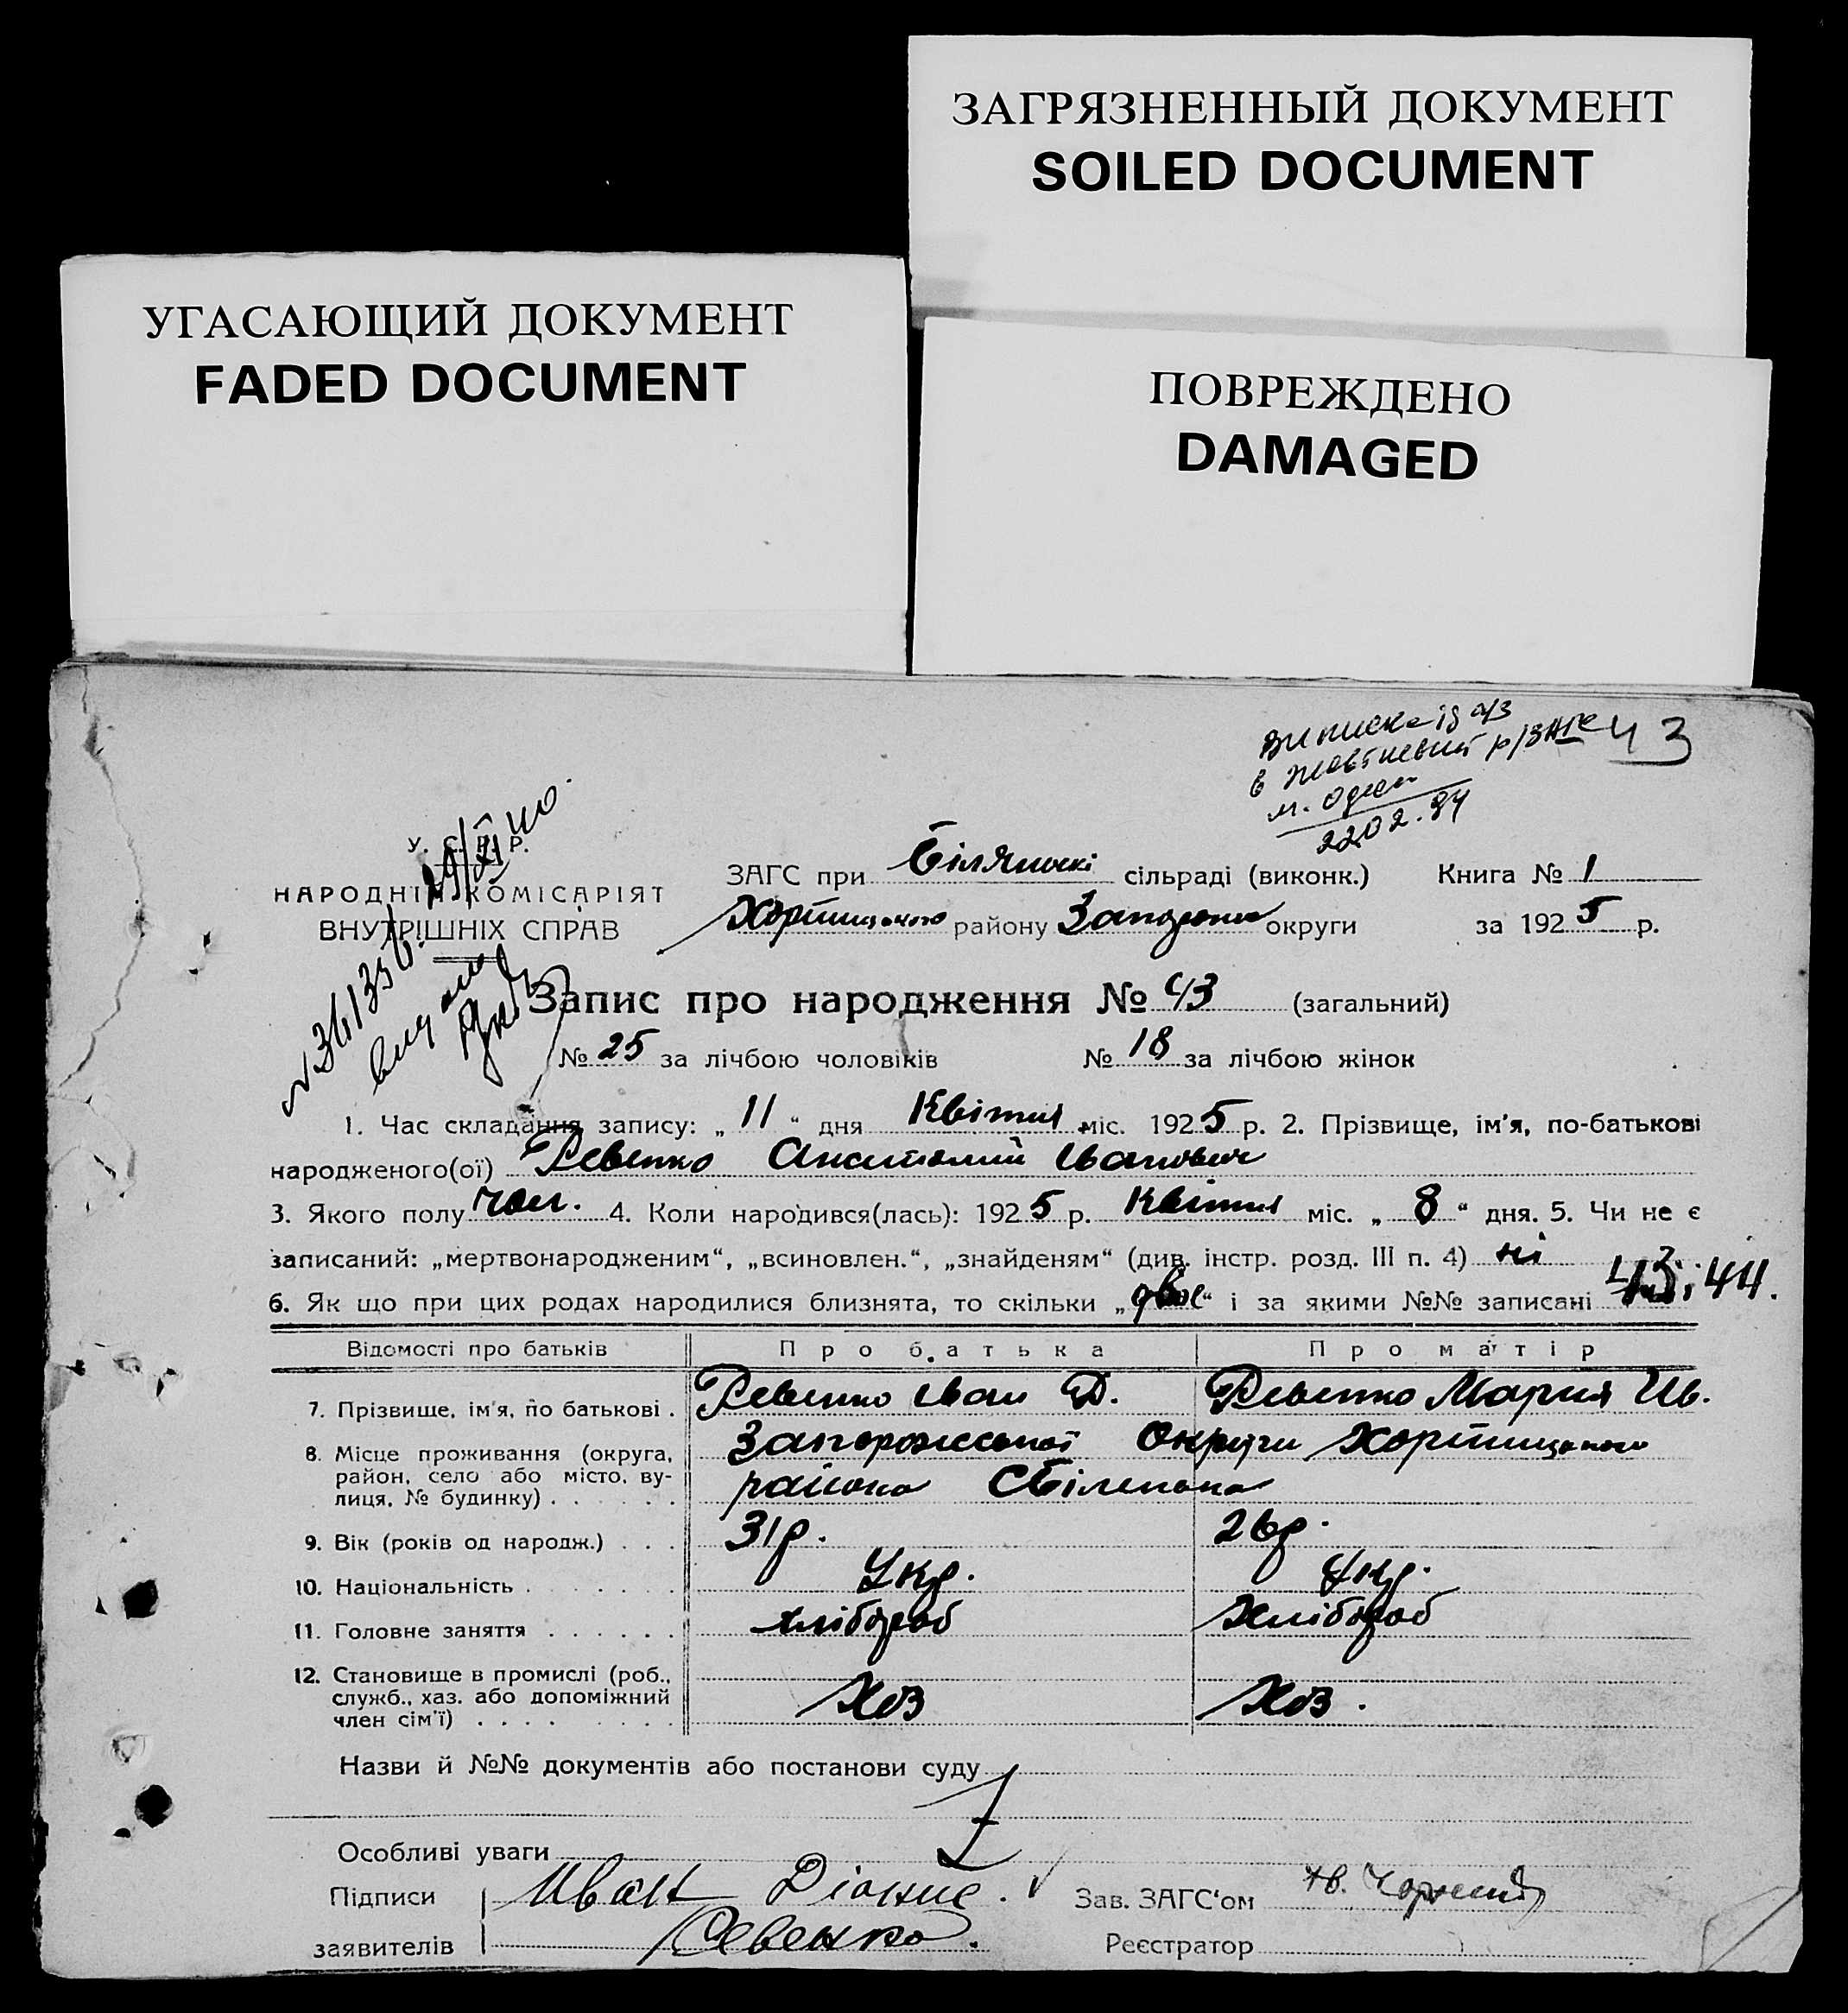 ЗАГРЯЗНЕННЫЙ ДОКУМЕНТ
SOILED DOCUMENT
УГАСАЮЩИЙ ДОКУМЕНТ
FADED DOCUMENT
ПОВРЕЖДЕНО
DAMAGED
43
м. Одеси
2202.84
У. С. Р. Р.
НАРОДНІЙ КОМІСАРІЯТ
ВНУТРІШНІХ СПРАВ
ЗАГС при сільраді (виконк.) Книга № 1
Хортицького району округи за 1925 р.
Запис про народження № 43 (загальний)
№ 25 за лічбою чоловіків № 18 за лічбою жінок
1. Час складання запису: „ 11 “ дня Квітня міс. 1925 р. 2. Прізвище, ім'я, по-батькові
народженого(ої) Ревенко Анатолий Иванович
3. Якого полу чол. 4. Коли народився(лась): 1925 р. Квітня міс. „ 8 “ дня. 5. Чи не є
записаний: „мертвонародженим“, „всиновлен.“, „знайденям“ (див. інстр. розд. III п. 4) ні
6. Як що при цих родах народилися близнята, то скільки „двоє“ і за якими №№ записані 43 і 44.
Відомості про батьків Про батька Про матір
7. Прізвище, ім'я, по батькові . Ревенко Иван Д. Ревенко Мария Ив.
8. Місце проживання (округа, район, село або місто, ву-лиця, № будинку) . . . . . . Запорожської Округи Хортицького
района
9. Вік (років од народж.) . . . 31р. 26р.
10. Національність . . . . . . Укр. Укр.
11. Головне заняття . . . . . . хлібороб Хлібороб
12. Становище в промислі (роб., служб., хаз. або допоміжний член сім'ї) . . . . . . . . Хоз Хоз.
Назви й №№ документів або постанови суду
Особливі уваги
Підписи Иван Діонис. Зав. ЗАГС'ом
заявителів Ревенко. Реєстратор